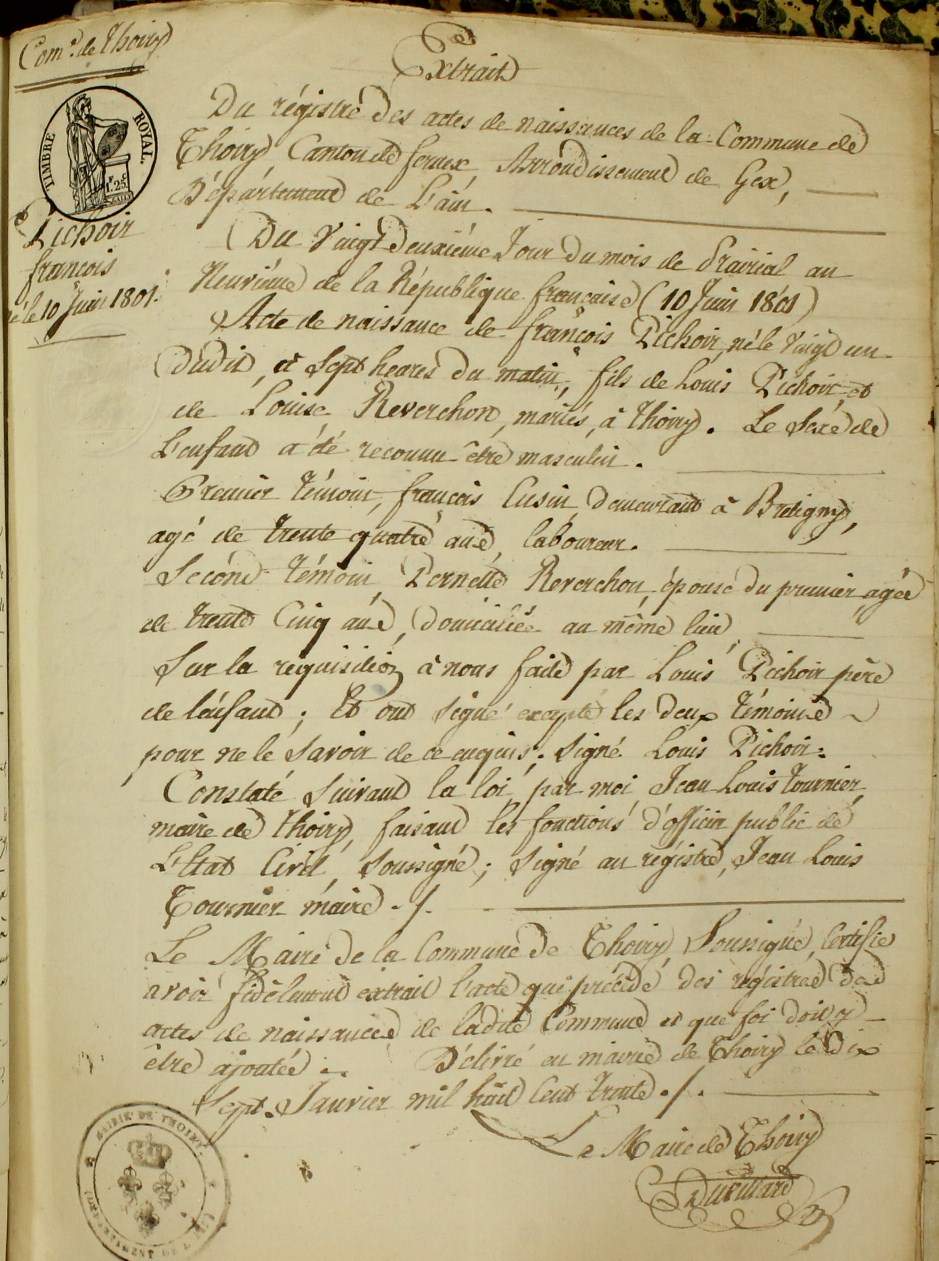 Com.e de Thoiry
Extrait
TIMBRE ROYAL.
1F.25C
Du régistre des actes de naissances de la Commune de
Thoiry Canton de fernex, Arrondissement de Gex,
Département de L'ain.
Pichoir
françois
né le 10 Juin 1801.
Du Vingt deuxième Jour du mois de Prairial an
Neuvième de la République française (10 Juin 1801)
Acte de naissance de françois Pichoir, né le Vingt un
dudit, à Sept heures du matin, fils de Louis Pichoir, et
de Louise Reverchon, mariés, à Thoiry. Le Sexe de
L'enfant a été reconnu être masculin.
Premier témoin, françois Cusin, demeurant à Bretigny,
agé de trente quatre ans, laboureur.
Second témoin, Pernette Reverchon, épouse du premier, agée
de trente Cinq ans, domiciliée au même lieu
Sur la requisition à nous faite par Louis Pichoir père
de l'enfant; Et ont signé excepté les deux témoins
pour ne le savoir de ce enquis. Signé Louis Pichoir.
Constaté Suivant la loi, par moi Jean Louis Tournier,
maire de Thoiry, faisant les fonctions d'officier public de
L'Etat Civil, Soussigné; Signé au régistre, Jean Louis
Tournier maire ./.
Le Maire de la Commune de Thoiry Soussigné, Certifie
avoir fidèlement extrait l'acte qui précède, des régistres des
actes de naissances de ladite Commune et que foi doit y
être ajoutée. Délivré en mairie de Thoiry le dix
Sept Janvier mil huit Cent trente ./.
Le Maire de Thoiry
Duvillard
MAIRIE DE THOIRY.
DEPARTEMENT DE L'AIN